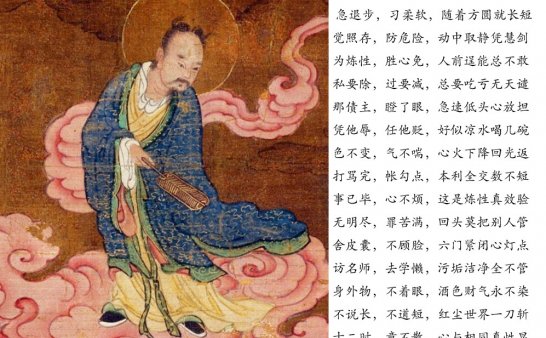 急退步，习柔软，随着方圆就长短
觉照存，防危险，动中取静凭慧剑
为炼性，胜心免，人前逞能总不敢
私要除，过要减，总要吃亏无天谴
那债主，瞪了眼，急速低头心放坦
凭他辱，任他贬，好似凉水喝几碗
色不变，气不喘，心火下降回光返
打骂完，帐勾点，本利全交数不短
事已毕，心不烦，这是炼性真效验
无明尽，罪苦满，回头莫把别人管
舍皮囊，不顾脸，六门紧闭心灯点
访名师，去学懒，污垢洁净全不管
身外物，不着眼，酒色财气永不染
不说长，不道短，红尘世界一刀斩
十二时，意不散，心与相同真性显